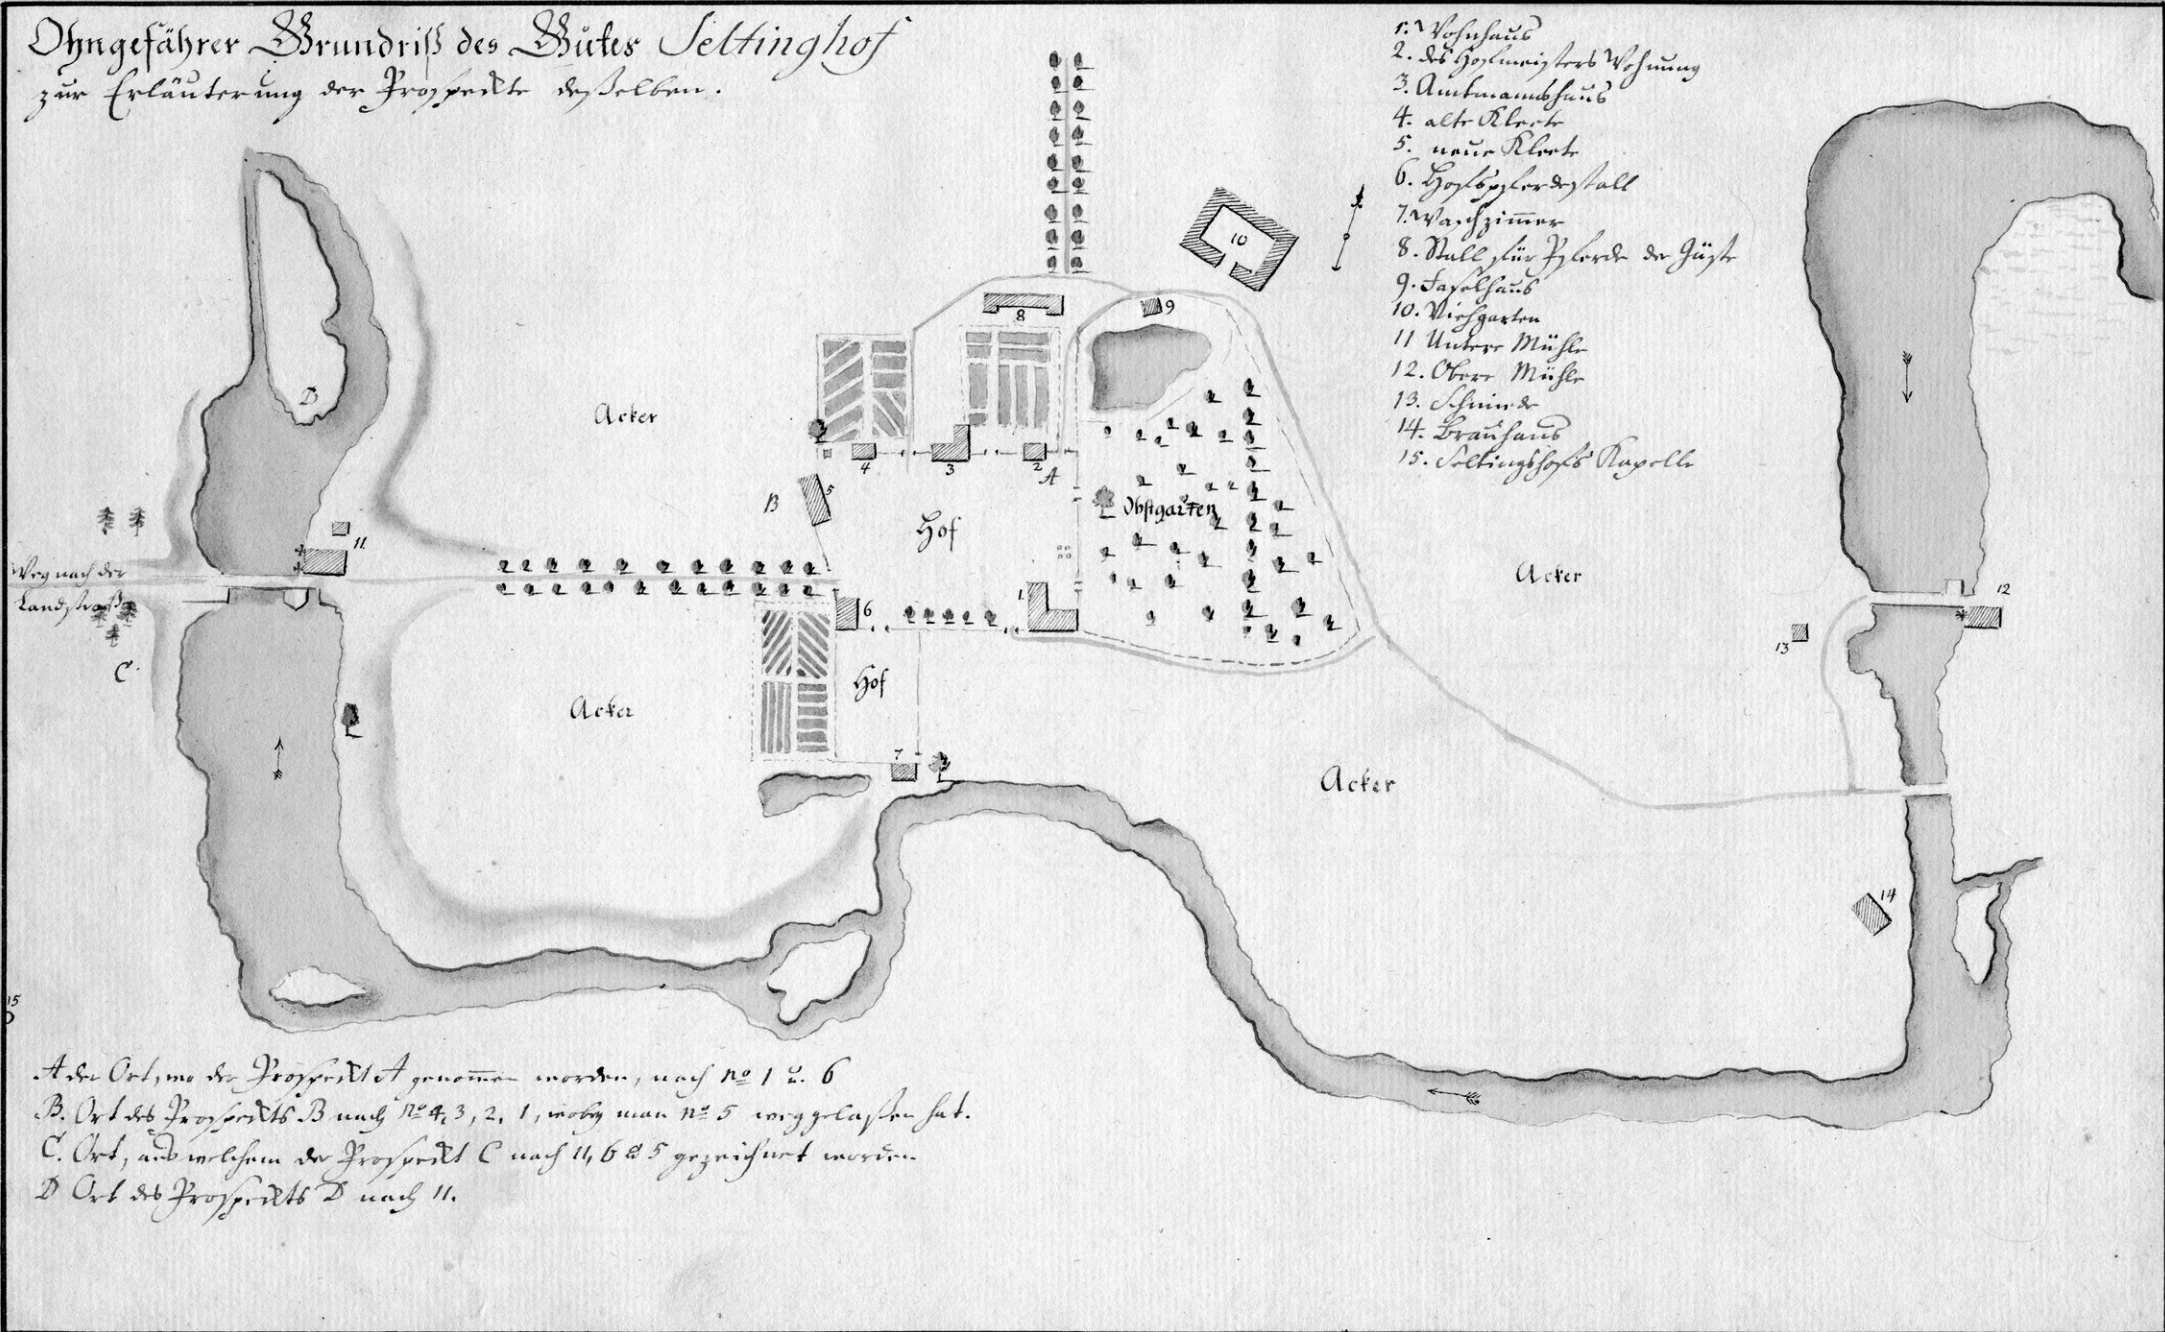 Ohngefährer Grundriß des Gutes Seltinghof
zur Erläuterung der Prospeckte deßelben.
1. Wohnhaus
2. des Hofmeisters Wohnung
3. Amtmannshaus
4. alte Kleete
5. neue Kleete
6. Hofspferdestall
7. Waschzimmer
8. Stall für Pferde der Gäste
9. Faselhaus
10. Viehgarten
11 Untere Mühle
12. Obere Mühle
13. Schmiede
14. Brauhaus
15. Seltingshofs Kapelle
10
8
9
D
Acker
4
3
2
A
B
5
Hof
Obstgarten
11.
Weg nach der
Landstraß
Acker
12
6
1.
13
C.
Hof
Acker
7
Acker
14
15
A der Ort, wo der Prospeckt A genommen worden, nach No 1 u. 6
B. Ort des Prospeckts B nach No 4, 3, 2, 1, wobey man No 5 weggelaßen hat.
C. Ort, aus welchem der Prospeckt C nach 11, 6 & 5 gezeichnet worden
D Ort des Prospeckts D nach 11.